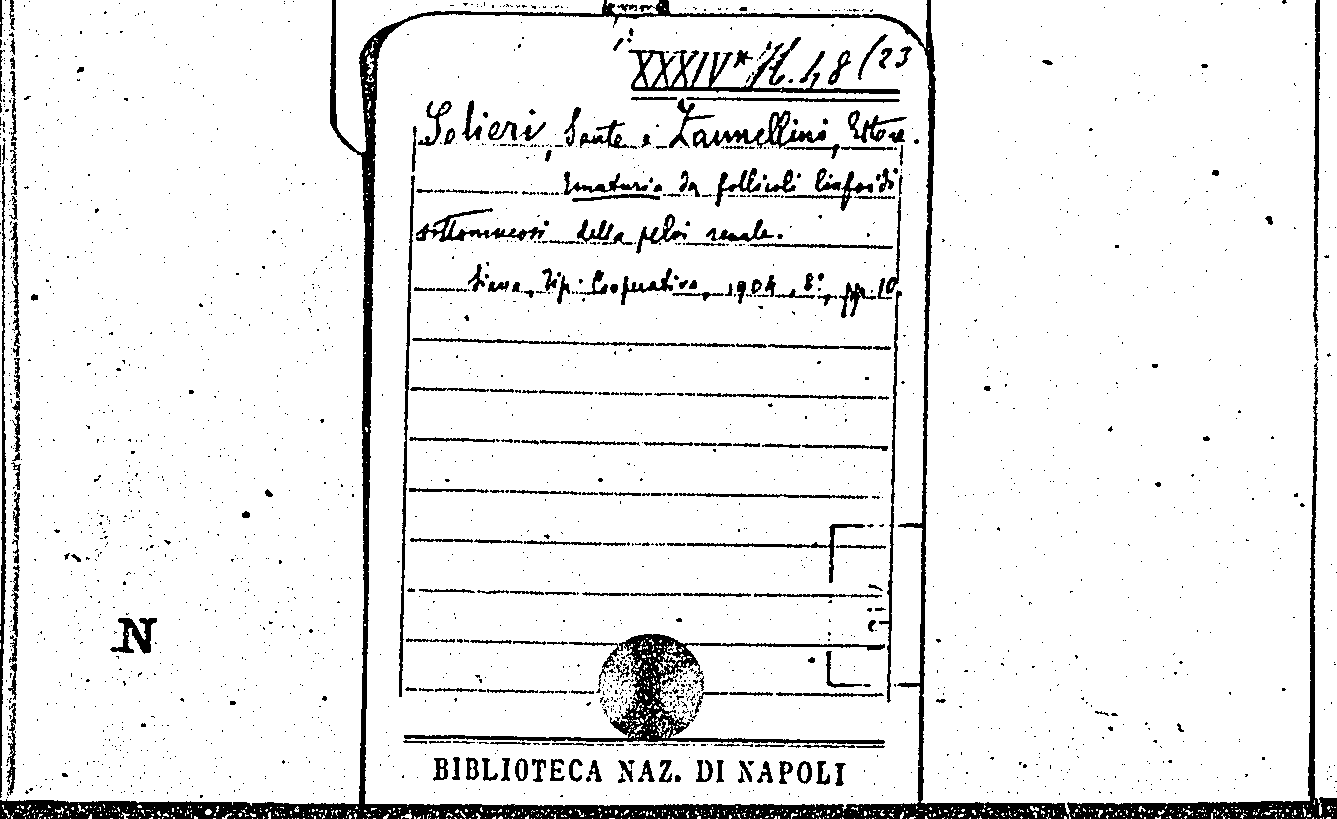 XXXIV* H. 48 (23
Solieri, Sante e Zannellini, Ettore.
Ematuria da follicoli linfoidi
sottomucosi della pelvi renale.
Siena, Tip. Cooperativa, 1904, 8°, pp. 10.
N
BIBLIOTECA NAZ. DI NAPOLI